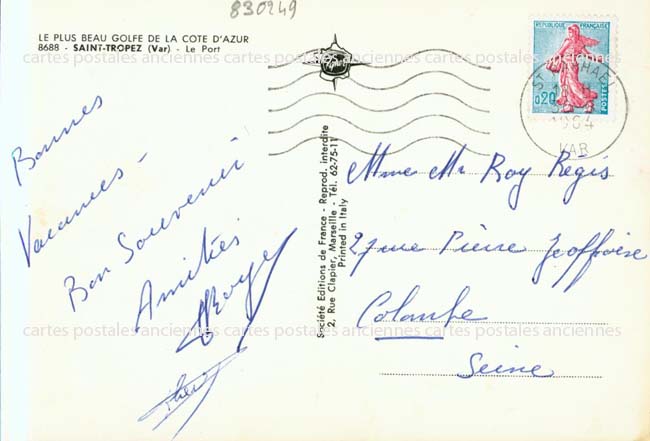 830249
LE PLUS BEAU GOLFE DE LA COTE D'AZUR
8688 - SAINT-TROPEZ (Var) - Le Port
REPUBLIQUE FRANÇAISE
0,20
POSTES
ST RAPHAEL
1964
VAR
Bonnes
Vacances -
Bon Souvenir
Amitiés
Société Editions de France - Reprod. interdite
2, Rue Clapier, Marseille - Tél. 62-75-11
Printed in Italy
Mme Mr Roy Regis
27 rue Pierre Geoffroix
Colombe
Seine
cartes postales anciennes cartes postales anciennes cartes postales anciennes